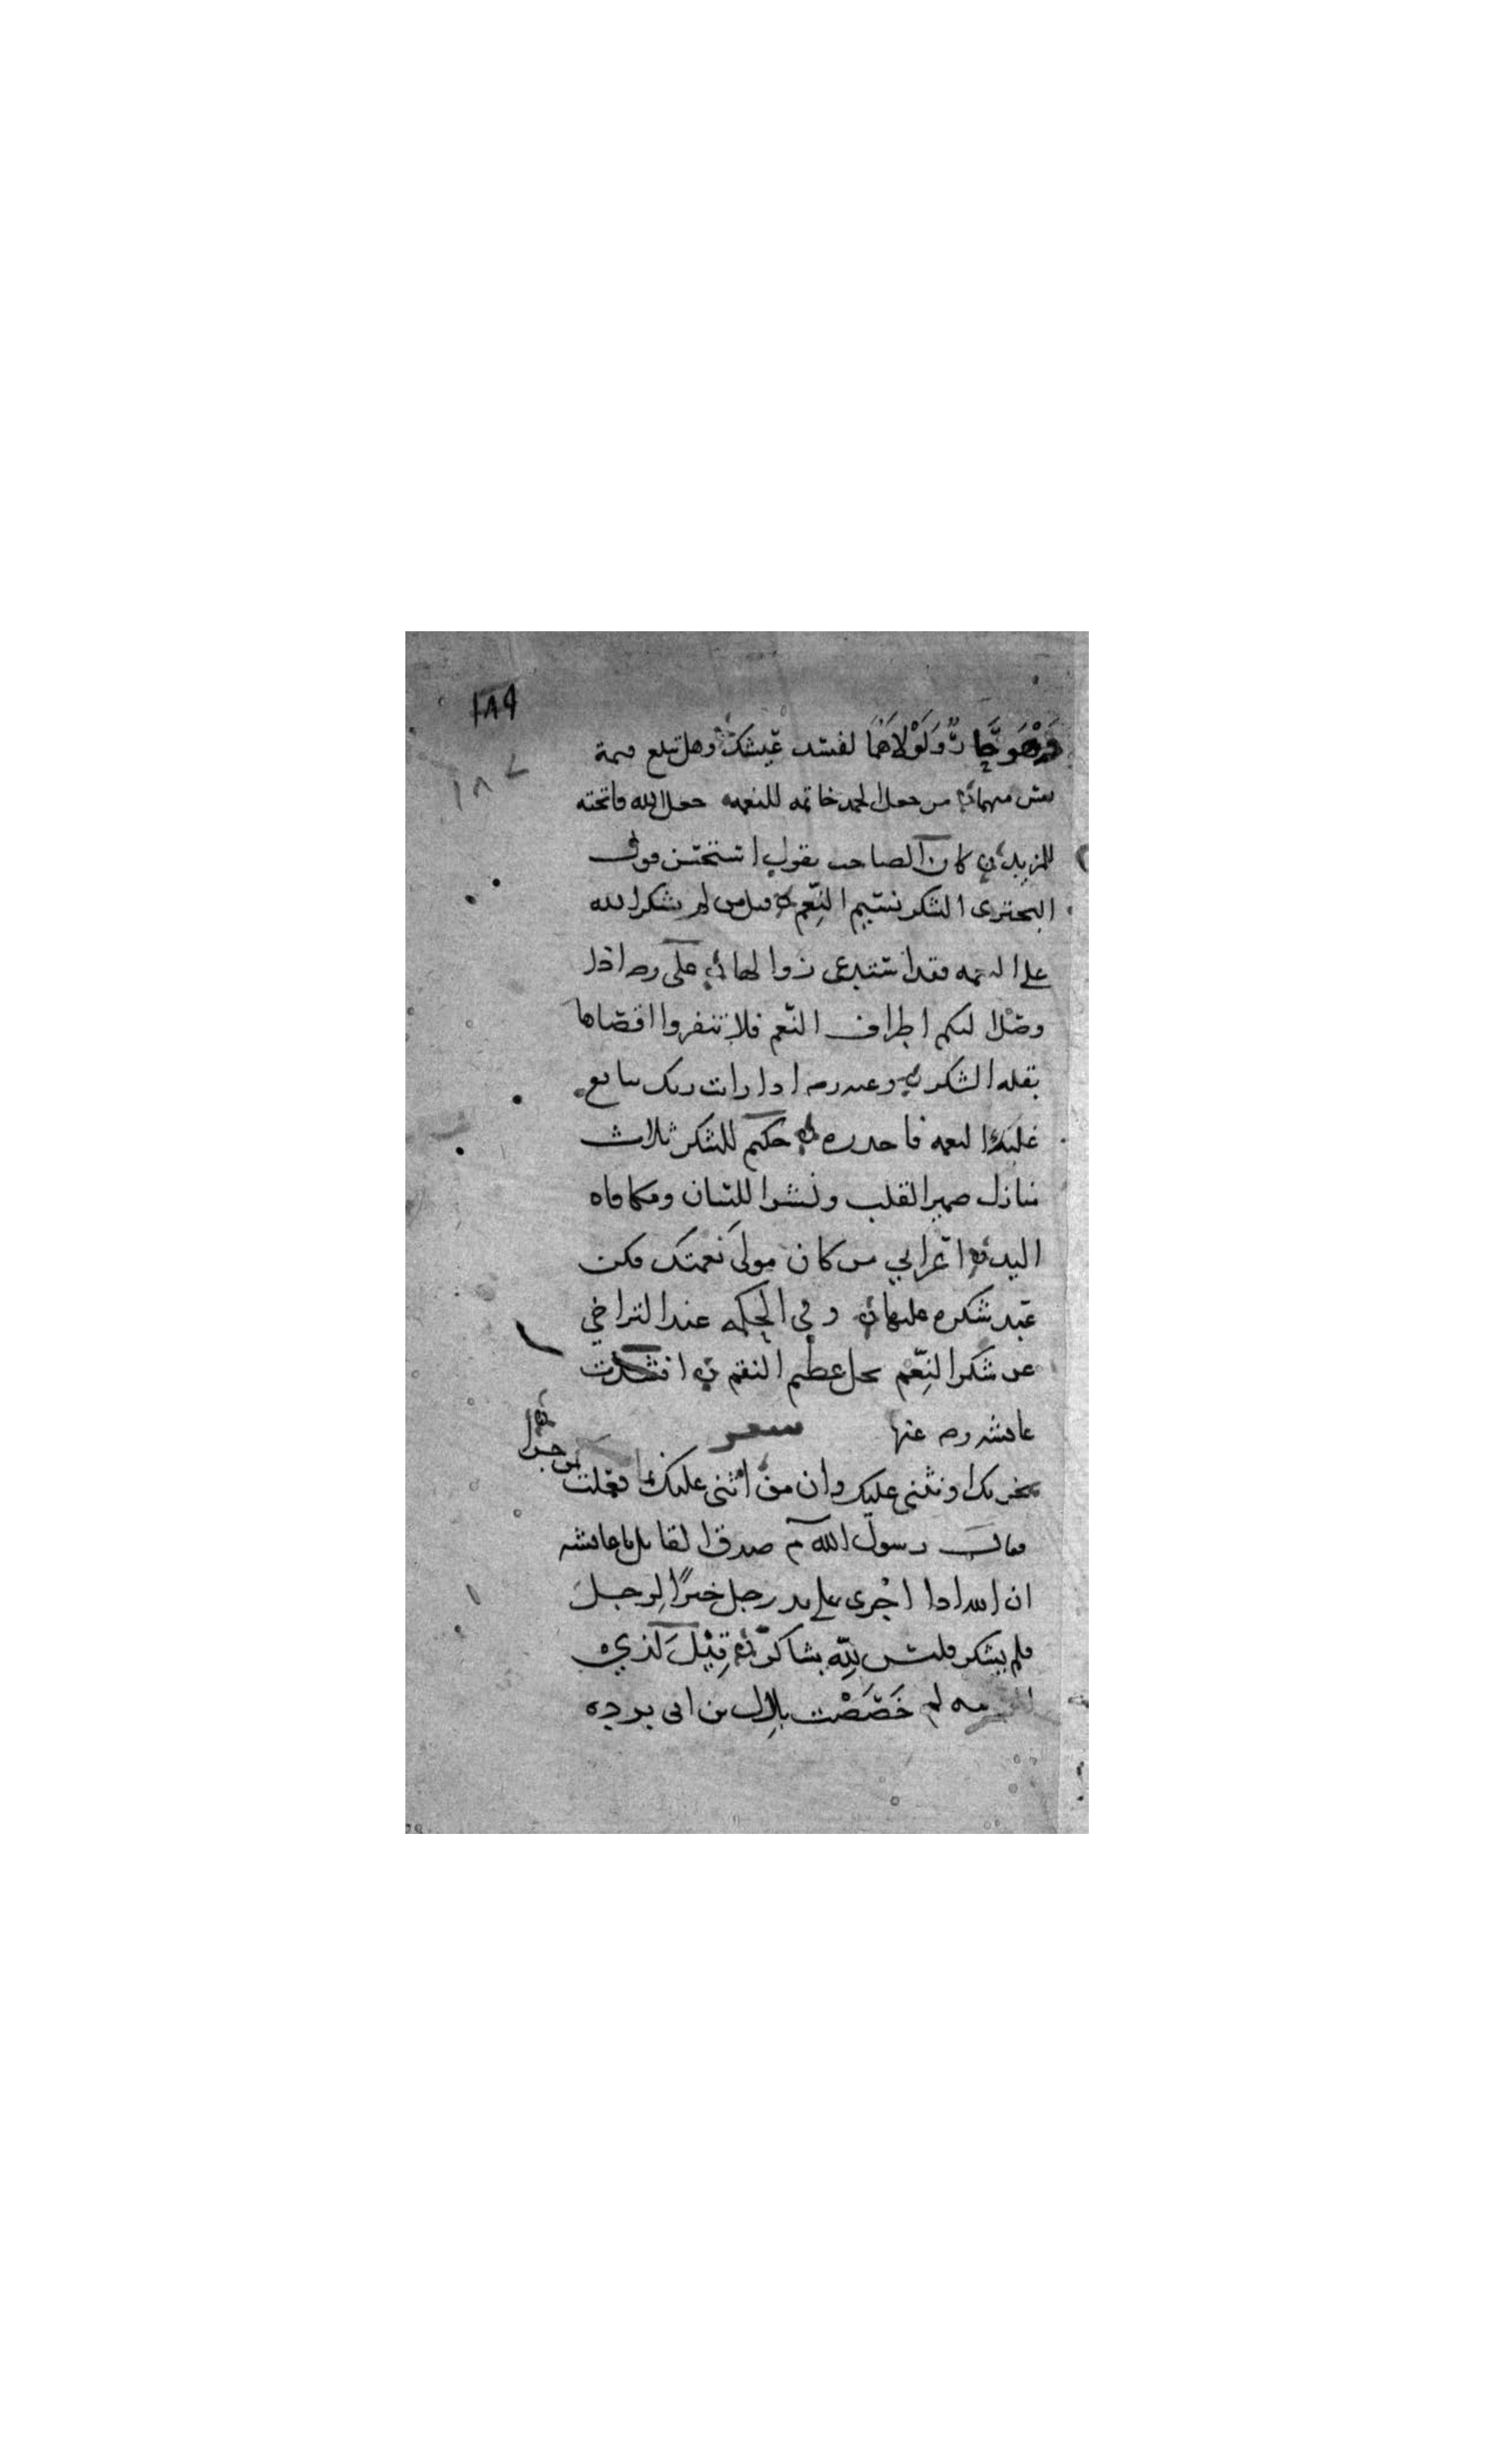 ١٨٩
١٨٧
وهو حار ولولاهما لفسد عيشك وهل تبلغ قيمة
من جعل الحمد خاتمة للنعمه جعل الله فاتحته
للمزيد كان الصاحب يقول استحسن قول
البحتري الشكر نسيم النعم قيل من لم يشكر الله
على النعمه فقد استدعى زوالها علي رضه اذا
وصل اليكم اطراف النعم فلا تنفروا اقصاها
بقله الشكر وعنه رضه اذا رايت ربك يتابع
عليك النعمه فاحذره حكيم للشكر ثلاث
منازل ضمير القلب ونشر اللسان ومكافاه
اليد اعرابي من كان مولى نعمتك فكن
عبد شكره عليها وفي الحكمه عند التراخي
عن شكر النعم تحل عظيم النقم انشدت
عائشه رضه عنها شعر
يجزيك او يثني عليك وان من اثنى عليك بما فعلت
كمن جزا
فقال رسول الله صدق القائل يا عائشه
ان الله اذا اجرى على يد رجل خيرا لرجل
فلم يشكر فليس لله بشاكر قيل لذي
الرمه لم خصصت بلال بن ابى برده